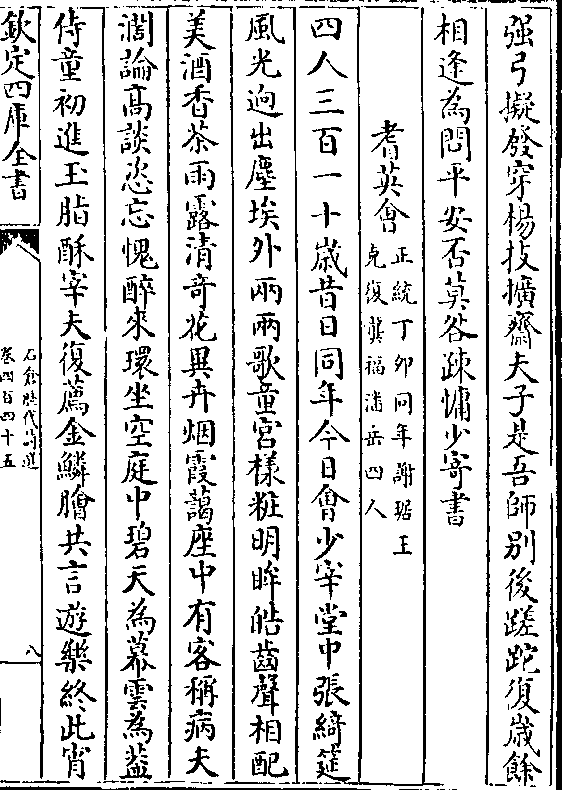 强弓擬發穿楊技擴齋夫子是吾師別後蹉跎復歲餘
相逢為問平安否莫咎疎慵少寄書
耆英會
正統丁夘同年謝琚王
克復龔福潘岳四人
四人三百一十歲昔日同年今日會少宰堂中張綺筵
風光逈出塵埃外兩兩歌童宮樣粧明眸皓齒聲相配
美酒香茶雨露清奇花異卉烟霞藹座中有客稱病夫
濶論髙談恣忘愧醉來環坐空庭中碧天為幕雲為葢
侍童初進玉脂酥宰夫復薦金鱗膾共言遊樂終此宵
欽定四庫全書
石倉歴代詩選
卷四百四十五
八